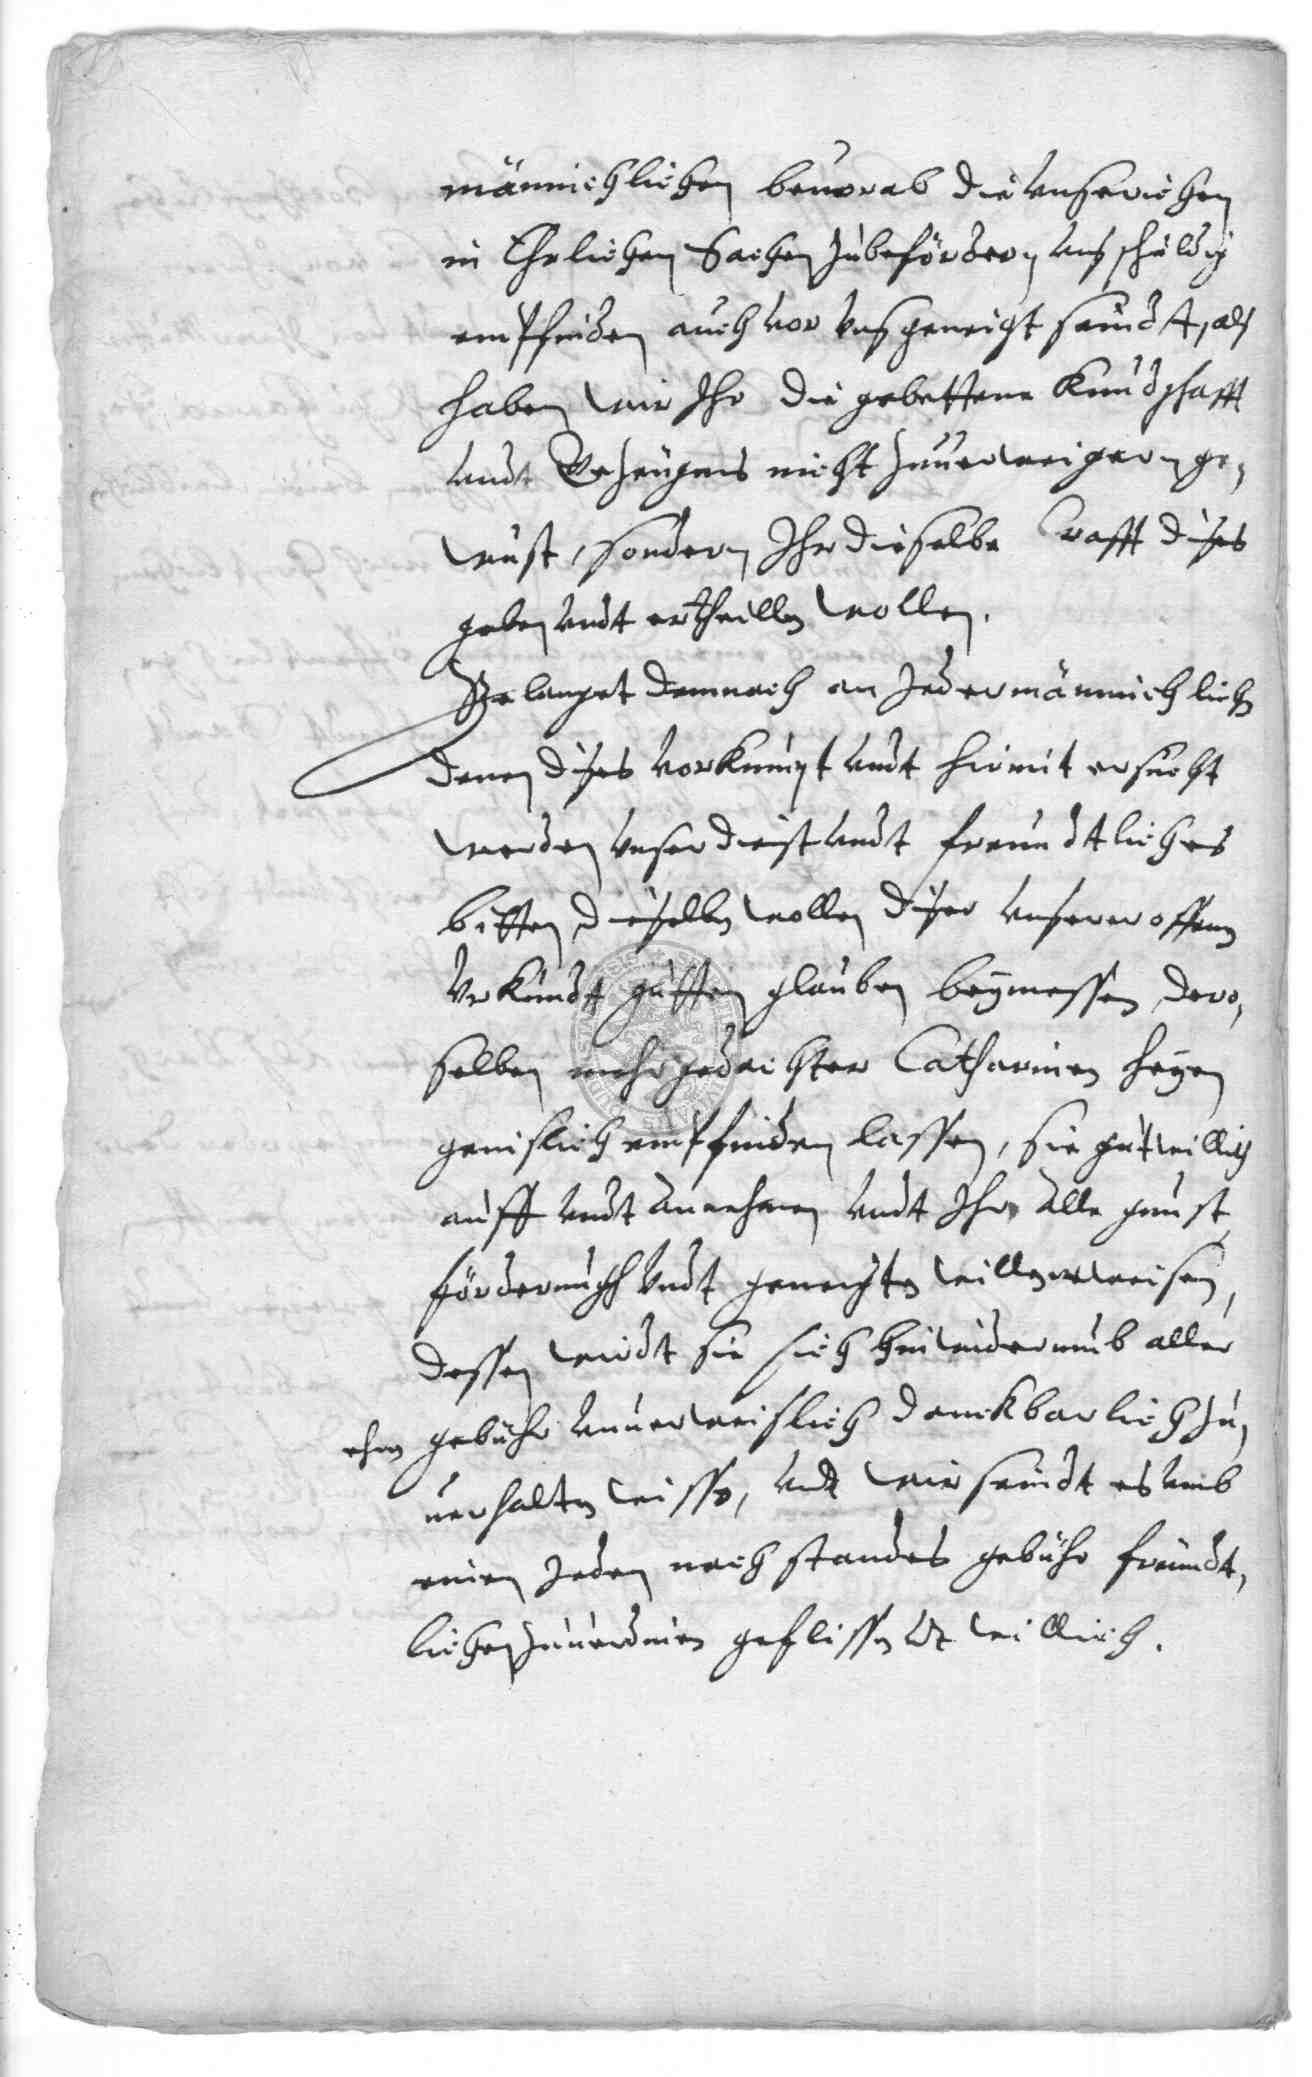 männichlichen beuorab die unserichen
in Ehrlichen Sachen zubefördern uns schuldig
empfinden auch vor uns geneigt seindt, als
haben wir Ihr die gebettene Kundschafft
undt gezeugnus nicht zuuerweigern ge,
wust, sondern Ihr dieselbe Crafft dises
geben undt ertheillen wollen.
Gelanget demnach an Jedermännichlichen
denen dises vorkumpt undt hirmit ersucht
werden unser dinst undt freundtliches
bitten, dieselben wollen diser unserer offenen
Urkundt gutten glauben beymessen, dero,
selben mehrgedachter Catharinen Heyen
genislich empfinden lassen, sie gutwillich
auff undt annehmen undt Ihr alle gunst,
förderungh undt geneigten willen erweisen,
dessen wirdt sie sich hinwiderumb aller
gebühr unuerweislich danckbarlich zu,
ehren
uerhalten wissen, undt wir seindt es umb
einen Jeden nach standes gebühr freundt,
lichen zuuerdinen geflissen undt willich.